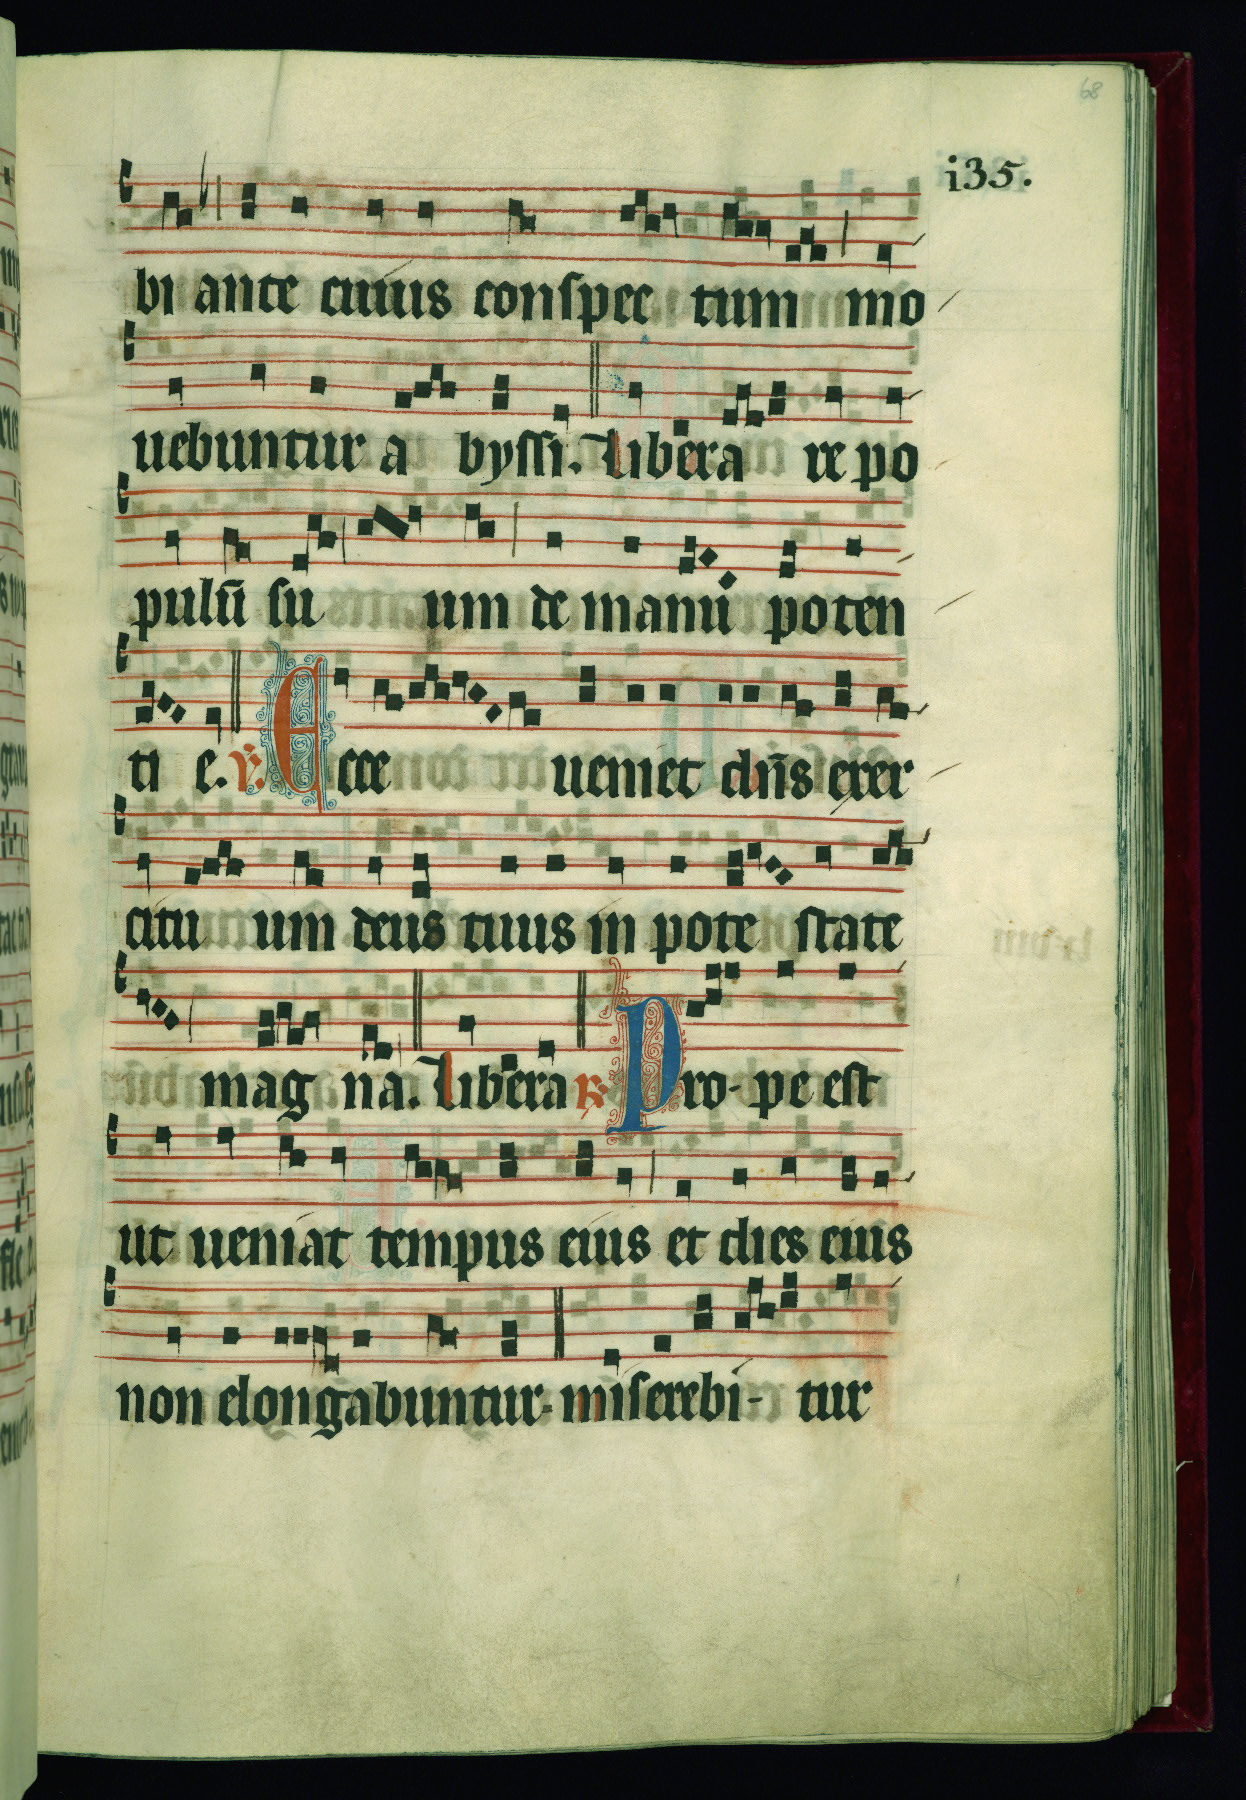 68
i35.
bi ante cuius conspec tum mo
uebuntur a byssi. libera re po
pulū su um de manu poten
ti e. ℣. Ecce ueniet dn̄s exer
citu um deus tuus in pote state
mag na. libera ℟ Pro- pe est
ut ueniat tempus eius et dies eius
non elongabuntur. miserebi- tur